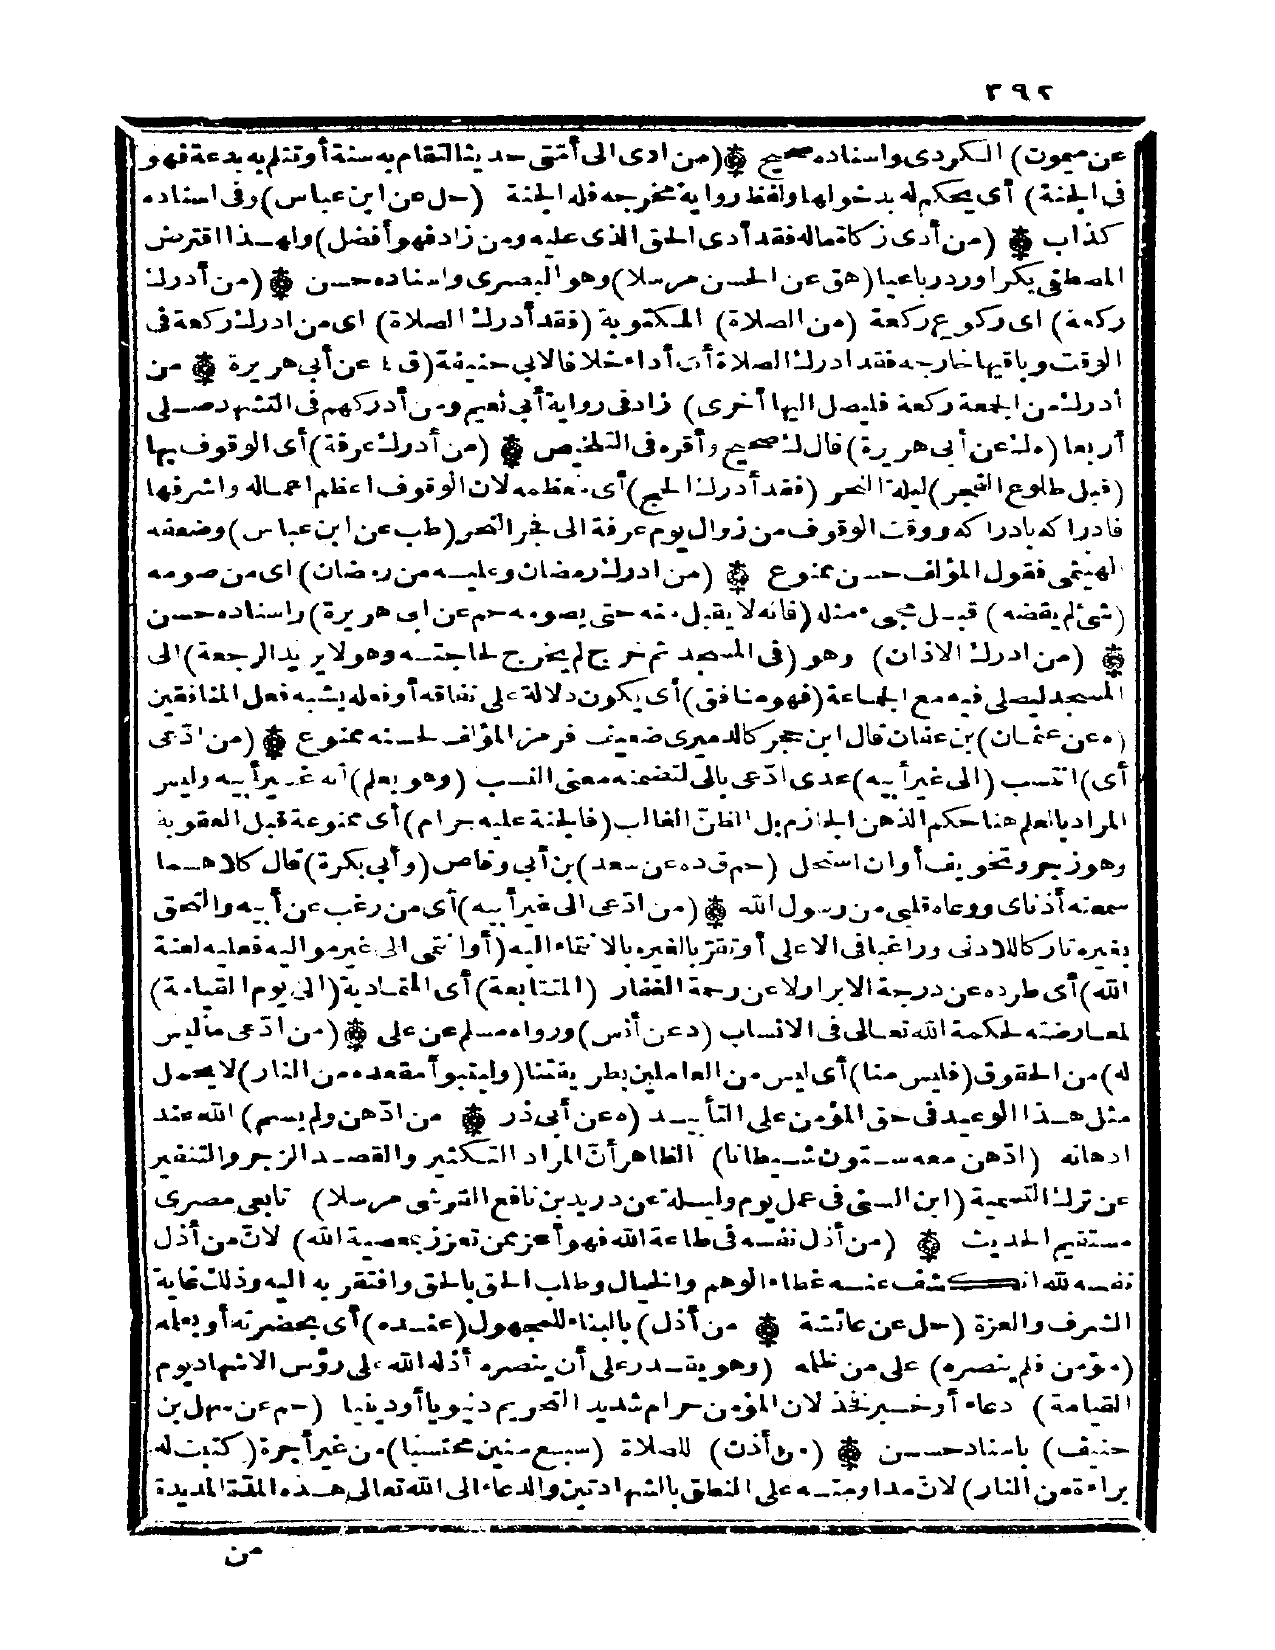 ٣٩٢
عن ميمون) الكردى واسناده صحيح (من ادى الى أمتى حديثا لتقام به سنة أو تثلم به بدعة فهو
فى الجنة) أى يحكم له بدخولها ولفظ رواية مخرجه فله الجنة (حل عن ابن عباس) وفى اسناده
كذاب (من أدى زكاة ماله فقد أدى الحق الذى عليه ومن زاد فهو أفضل) ولهذا اقترض
المصطفى بكرا ورد رباعيا (هق عن الحسن مرسلا) وهو البصرى واسناده حسن (من أدرك
ركعة) اى ركوع ركعة (من الصلاة) المكتوبة (فقد أدرك الصلاة) اى من ادرك ركعة فى
الوقت وباقيها خارجه فقد ادرك الصلاة أى أداء خلافا لابى حنيفة (ق ٤ عن أبى هريرة من
أدرك من الجمعة ركعة فليصل اليها أخرى) زاد فى رواية أبى نعيم ومن أدركهم فى التشهد صلى
أربعا (ه ك عن أبى هريرة) قال ك صحيح وأقره فى التلخيص (من أدرك عرفة) أى الوقوف بها
(قبل طلوع الفجر) ليلة النحر (فقد أدرك الحج) أى معظمه لان الوقوف اعظم اعماله واشرفها
فادراكه بادراكه ووقت الوقوف من زوال يوم عرفة الى فجر النحر (طب عن ابن عباس) وضعفه
الهيتمى فقول المؤلف حسن ممنوع (من ادرك رمضان وعليه من رمضان) اى من صومه
(شئ لم يقضه) قبل مجىء مثله (فانه لا يقبل منه حتى يصومه حم عن ابى هريرة) واسناده حسن
(من ادرك الاذان) وهو (فى المسجد ثم خرج لم يخرج لحاجته وهو لا يريد الرجعة) الى
المسجد ليصلى فيه مع الجماعة (فهو منافق) أى يكون دلالة على نفاقه أو فعله يشبه فعل المنافقين
(ه عن عثمان) بن عفان قال ابن حجر كالدميرى ضعيف فرمز المؤلف لحسنه ممنوع (من ادّعى
أى) انتسب (الى غير أبيه) عدى ادّعى بالى لتضمنه معنى النسب (وهو يعلم) أنه غير أبيه وليس
المراد بالعلم هنا حكم الذهن الجازم بل الظنّ الغالب (فالجنة عليه حرام) أى ممنوعة قبل العقوبة
وهو زجر وتخويف أو ان استحل (حم ق د ه عن سعد) بن أبى وقاص (وأبى بكرة) قال كلاهما
سمعته أذناى ووعاه قلبى من رسول الله (من ادّعى الى غير أبيه) أى من رغب عن أبيه والتحق
بغيره تاركا للادنى وراغبا فى الاعلى أو تقرّبا لغيره بالانتماء اليه (أو انتمى الى غير مواليه فعليه لعنة
الله) أى طرده عن درجة الابرار لا عن رحمة الغفار (المتتابعة) أى المتمادية (الى يوم القيامة)
لمعارضته لحكمة الله تعالى فى الانساب (د عن أنس) ورواه مسلم عن على (من ادّعى ما ليس
له) من الحقوق (فليس منا) أى ليس من العاملين بطريقتنا (وليتبوأ مقعده من النار) لا يحمل
مثل هذا الوعيد فى حق المؤمن على التأبيد (ه عن أبى ذر من ادّهن ولم يسم) الله عند
ادهانه (ادّهن معه ستون شيطانا) الظاهر أنّ المراد التكثير والقصد الزجر والتنفير
عن ترك التسمية (ابن السنى فى عمل يوم وليلة عن دريد بن نافع القرشى مرسلا) تابعى مصرى
مستقيم الحديث (من أذل نفسه فى طاعة الله فهو أعز ممن تعزز بمعصية الله) لانّ من أذل
نفسه لله انكشف عنه غطاء الوهم والخيال وطلب الحق بالحق وافتقر به اليه وذلك غاية
الشرف والعزة (حل عن عائشة من أذل) بالبناء للمجهول (عنده) أى بحضرته أو بعلمه
(مؤمن فلم ينصره) على من ظلمه (وهو يقدر على أن ينصره أذله الله على رؤس الاشهاد يوم
القيامة) دعاء أو خبر فخذل المؤمن حرام شديد التحريم دنيويا أو دينيا (حم عن سهل بن
حنيف) باسناد حسن (من أذن) للصلاة (سبع سنين محتسبا) من غير أجرة (كتبت له
براءة من النار) لان مداومته على النطق بالشهادتين والدعاء الى الله تعالى هذه المدّة المديدة
من